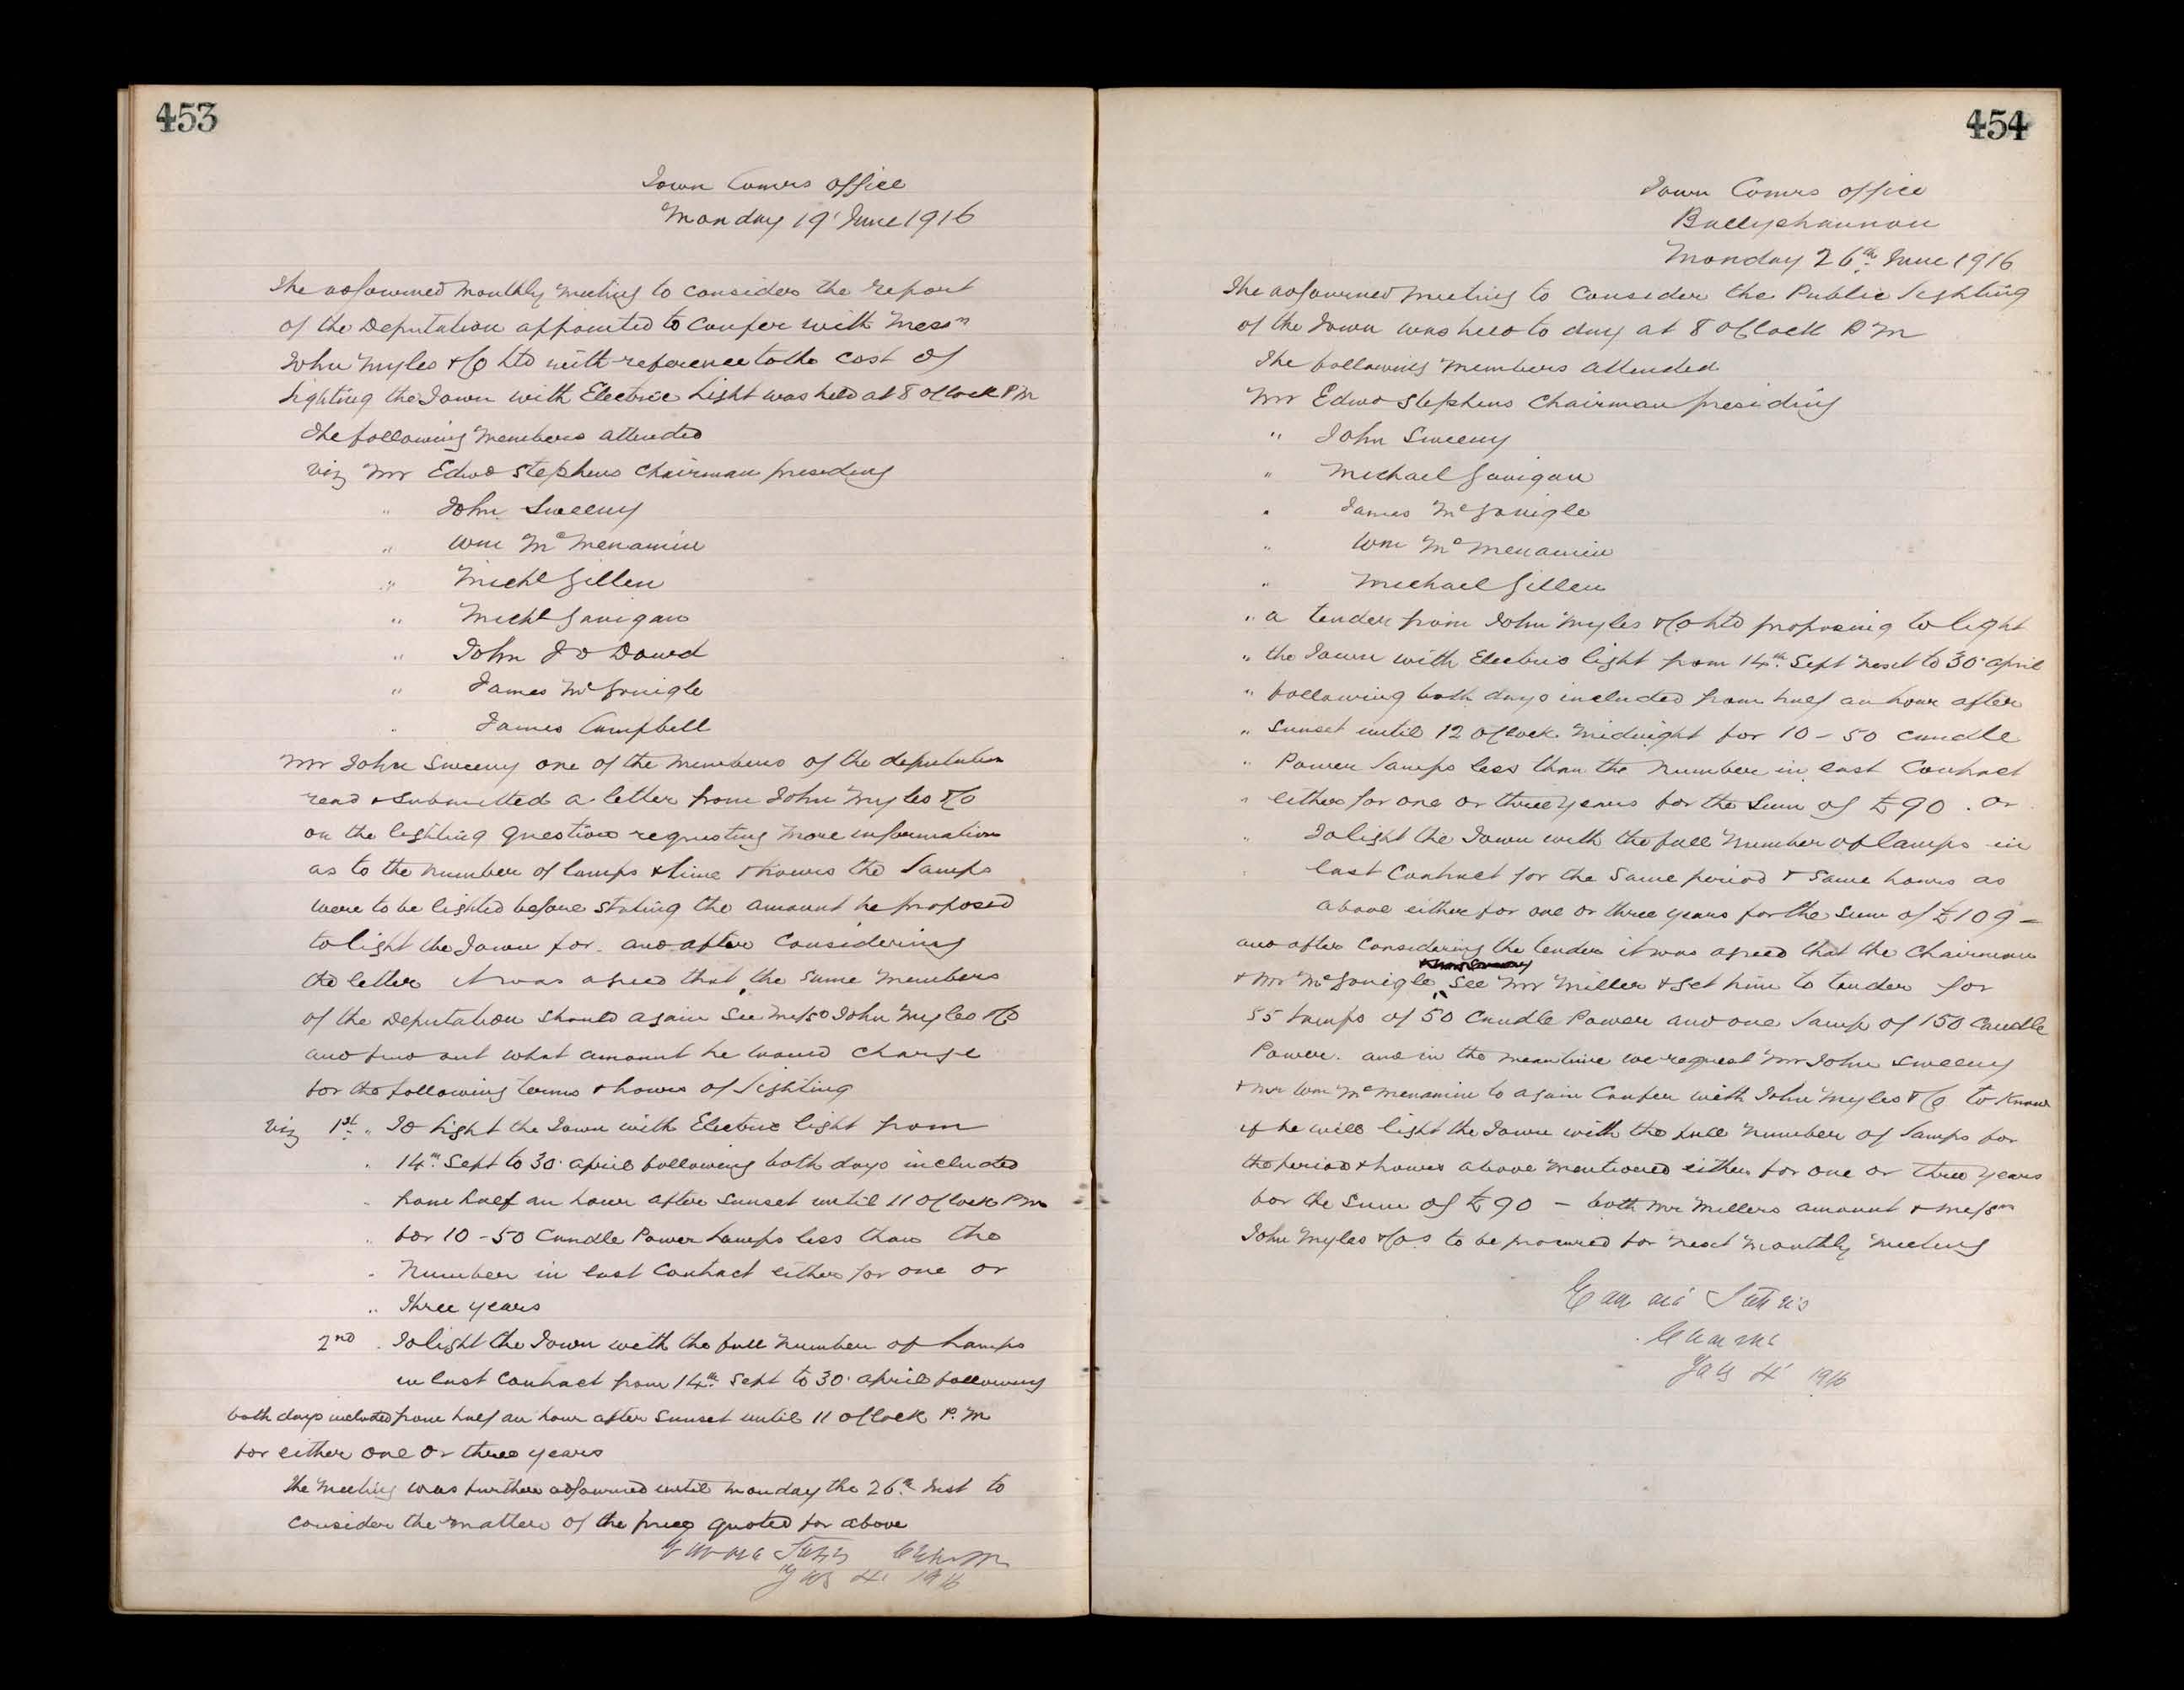 453
Town Comrs Office
Monday 19' June 1916
The adjourned Monthly Meeting to consider the report
of the Deputation appointed to confer with Messrs
John Myles & Co Ltd with reference to the cost of
lighting the Town with Electric Light was held at 8 oClock PM
The following Members attended
Viz Mr Edwd Stephens Chairman presiding
" John Sweeny
" Wm McMenamin
" Michl Gillen
" Michl Ganigan
" John J O Dowd
" James McGonigle
" James Campbell
Mr John Sweeny one of the Members of the deputation
read & submitted a letter from John Myles & Co
on the lighting question requesting more information
as to the number of lamps & time & hours the lamps
were to be lighted before stating the amount he proposed
to light the Town for and after Considering
the letter it was agreed that the same Members
of the Deputation should again see Messrs John Myles & Co
and find out what amount he would charge
for the following terms & hours of lighting
Viz 1st " To light the Town with Electric light from
" 14th Sept to 30' April following both days included
" from half an hour after sunset until 11 oClock PM
" for 10 - 50 Candle Power Lamps less than the
" Number in last Contract either for one or
" Three years
2nd " To light the Town with the full Number of Lamps
in last Contract from 14th Sept to 30' April following
both days included from half an hour after Sunset until 11 oClock P.M
for either one or three years
The Meeting was further adjourned until Monday the 26th Inst to
consider the matter of the price quoted for above
4' 1916
454
Town Comrs Office
Ballyshannon
Monday 26th June 1916
The adjourned Meeting to Consider the Public Lighting
of the Town was held to day at 8 oClock P M
The following Members attended
Mr Edwd Stephens Chairman presiding
" John Sweeny
" Michael Ganigan
" James McGonigle
" Wm McMenamin
" Michael Gillen
" a tender from John Myles & Co Ltd proposing to light
" the Town with Electric light from 14th Sept next to 30' April
" following both days included from half an hour after
" Sunset until 12 oClock Midnight for 10 - 50 Candle
" Power Lamps less than the Number in last Contract
" either for one or three years for the Sum of £90 . or
" To light the Town with the full Number of lamps in
" last Contract for the same period & same hours as
above either for one or three years for the Sum of £109 -
and after Considering the tender it was agreed that the Chairman
& Mr McGonigle see Mr Miller & get him to tender for
55 Lamps of 50 Candle Power and one Lamp of 150 Candle
Power. and in the meantime we request Mr John Sweeny
& Mr Wm McMenamin to again Confer with John Myles & Co to Know
if he will light the Town with the full Number of Lamps for
the period & hours above Mentioned either for one or three years
for the Sum of £90 - both Mr Millers amount & Messrs
John Myles & Cos to be procured for next Monthly Meeting
4' 1916